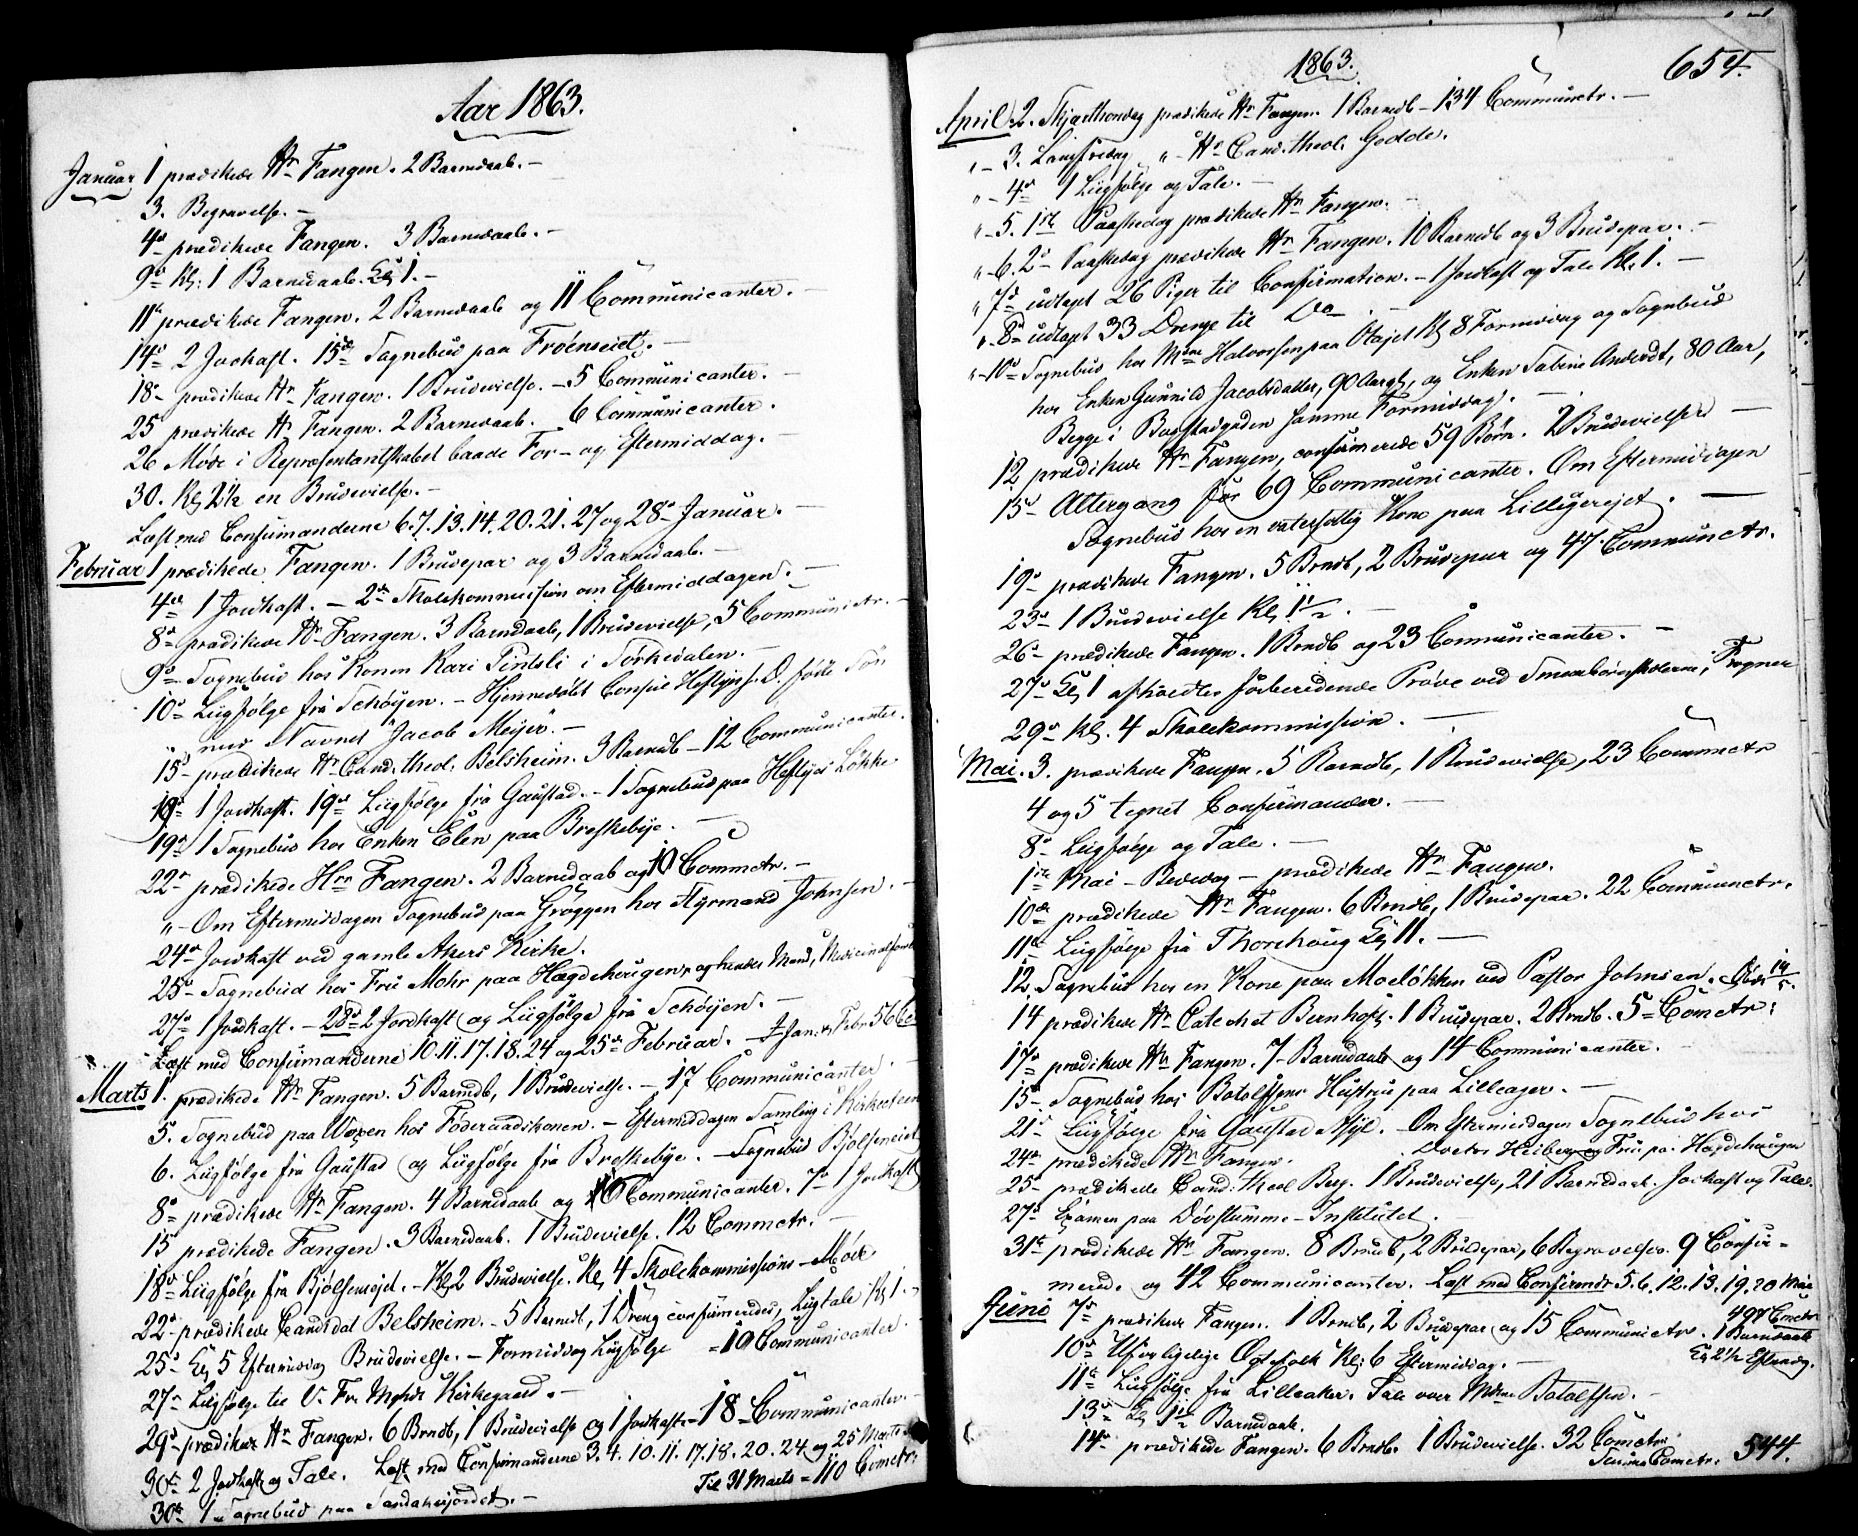 Aar 1863.
Januar 1 prædikede Hr Fangen. 2 Barnedaab. –
3. Begravelse. –
4de prædikede Fangen. 3 Barnedaab. –
9de Kl: 1 Barnedaab. Kl 1. –
11te prædikede Fangen. 2 Barnedaab og 11 Communicanter. –
14de 2 Jordkast. 15de Sognebud paa Frøenseiet. –
18de prædikede Hr Fangen. 1 Brudevielse. – 5 Communicanter. –
25 prædikede Hr Fangen. 2 Barnedaab. 6 Communicanter.
26 Møde i Repræsentantskabet baade For- og Eftermiddag. –
30. Kl 2½ en Brudevielse. –
Læst med Confirmanderne 6. 7. 13. 14. 20. 21. 27 og 28de Januar. –
Februar 1 prædikede Fangen. 1 Brudepar og 3 Barnedaab. –
4de 1 Jordkast. – 2den Skolekommission om Eftermiddagen. –
8de prædikede Hr Fangen. 3 Barnedaab, 1 Brudevielse, 5 Communictr. –
9de Sognebud hos Konen Kari Pintsli i Sørkedalen. –
10de Liigfølge fra Schøijen. – Hjemmedøbt Consul Heftyes f. D. fødte Søn
med Navnet "Jacob Meyer". –
15de prædikede Hr Cand. theol. Belsheim. 3 Barndb – 12 Communicanter.
18de 1 Jordkast. 19de Liigfølge fra Gaustad. – 1 Sognebud paa Heftyes Løkke.
19de 1 Sognebud hos Enken Elen paa Breskebye. –
22de prædikede Hrr Fangen. 2 Barnedaab og 10 Commctr. –
" – Om Eftermiddagen Sognebud paa Grøggen hos Styrmand Johnsen. –
24de Jordkast ved gamle Akers Kirke.
25de Sognebud hos Fru Mohr paa Hægdehaugen, og hendes Mand,
27de 1 Jordkast. – 28de 2 Jordkast og Liigfølge fra Schøijen. –
Læst med Confirmanderne 10. 11. 17. 18. 24 og 25de Februar. – I Jan. & Febr. 56
Marts 1. prædikede Hr Fangen. 5 Barndb, 1 Brudevielse. – 17 Communicanter.
5. Sognebud paa Woxen hos Føderaadskonen. – Eftermiddagen Samling i
6. Liigfølge fra Gaustad og Liigfølge fra Breskebye. – Sognebud Bjølseneiet
8de prædikede Hr Fangen. 4 Barnedaab og 16 Communicanter. 7de 1 Jordkast
15de prædikede Fangen. 3 Barnedaab. 1 Brudevielse. 12 Commctr. –
18de Liigfølge fra Bjølseneiet. – Kl 2 Brudevielse. Kl 4 Skolekommissions-Møde
22de prædikede Candidat Belsheim. – 5 Barndb, 1 Dreng confirmeredes, Liigtale Kl 1. –
25de Kl 5 Eftermiddag Brudevielse. – Formiddag Liigfølge = 19 Communicanter.
27de Liigfølge til V. Fr. Kirkegaard. –
29de prædikede Hr Fangen. 6 Brndb, 1 Brudevielse og 1 Jordkast – 18 Communicanter. –
30te 2 Jordkast og Tale. Læst med Confirmanderne 3. 4. 10. 11. 17. 18. 20. 24 og 25 Marts
30te 1 Sognebud paa Sandakerjordet. – Til 31 Marts = 110 Comctr.
1863. 654.
April 2. Skjærthorsdag prædikede Hr Fangen. 1 Barndb – 134 Communctr. –
" – 3. Langfredag " – Hr Cand. theol. Godde.
" – 4de 1 Liigfølge og Tale. –
" – 5. 1ste Paaskedag prædikede Hr Fangen. –
" – 6. 2den Paaskedag prædikede Hr Fangen. 10 Barndb og 3 Brudepar. –
" 7de udtaget 26 Piger til Confirmation. – 1 Jordkast og Tale Kl. 1. –
" – 8de udtaget 33 Drenge til Do –
" – 10de Sognebud hos Mdme Halvorsen paa Kl 8 Formiddag og Sognebud
hos Enken Gunnild Jacobsdatter, 90 Aargl, og Enken Sabine Andersdt, 80 Aar,
Begge i Bogstadgaden samme Formiddag. –
12 prædikede Hr Fangen, confirmerede 59 Børn. 2 Brudevielser –
15de Altergang for 69 Communicanter. Om Eftermiddagen
Sognebud hos en vatersottig Kone paa Lilligereiet. –
19de prædikede Fangen. 5 Brndb, 2 Brudepar og 47 Communctr.
23de 1 Brudevielse Kl 1½. –
26de prædikede Fangen. 1 Brndb og 23 Communicanter. –
27de Kl 1 afholdtes forberedende Prøve ved Smaabørnskolerne i Frogner
29de Kl. 4 Skolekommission. –
Mai. 3. prædikede Fangen. 5 Barndb, 1 Brudevielse, 23 Commctr
4 og 5 tegnet Confirmander. –
8de Liigfølge og Tale. –
1ste Mai – Bededag – prædikede Hr Fangen.
10de prædikede Hr Fangen. 6 Brndb, 1 Brudepar. 22 Communctr.
11te Liigfølge fra Thorshaug Kl 11. –
12 Sognebud hos en Kone paa Moeløkken ved Pastor Johnsen. Død 14/5.
14 prædikede Hr Catechet Bernhoft. 1 Brudepar. 2 Brndb. 5 Comctr.
17de prædikede Hr Fangen. 7 Barnedaab og 14 Communicanter. –
15de Sognebud hos Botolfsens Hustru paa Lilleager. –
21de Liigfølge fra Gaustad Asyl. – Om Eftermiddagen Sognebud hos
24de prædikede Hr Fangen. Doctor Heiberg og Frue paa Hægdehaugen
25de prædikede Cand. theol Berg. 1 Brudevielse, 21 Barnedaab. Jordkast og Tale.
27de Examen paa Døvstumme-Institutet.
31te prædikede Hr Fangen. 8 Brndb, 2 Brudepar, 6 Begravelser. 9 Confir-
merede og 42 Communicanter. Læst med Confirmndr 5. 6. 12. 13. 19. 20 Mai
Juni 7de prædikede Fangen. 1 Brndb, 2 Brudepar og 15 Communictr. 497 Comctr
10de Ufærligelige Ægtefolk Kl. 6 Eftermiddag. – 1 Barnedaab
11te Liigfølge fra Lilleaker. Tale over Mdme Botolfsen. – Kl 2½ Eftmdg.
13de Kl 1½ Barnedaab.
14de prædikede Fangen. 6 Brndb. 1 Brudevielse. 32 Comctr.
Summa Comctr. 544.